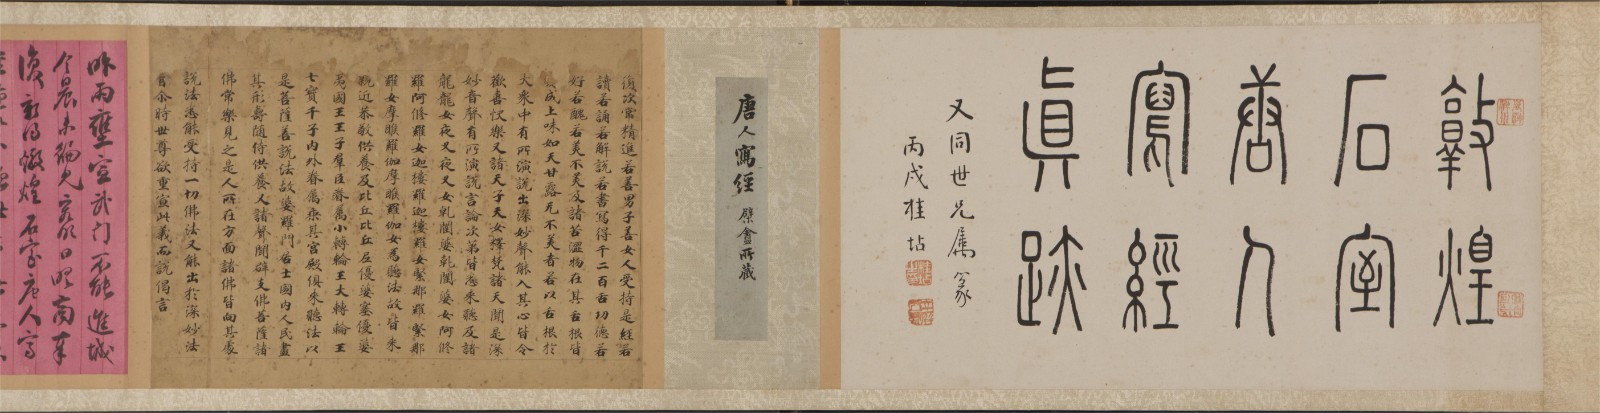 敦煌
石室
唐人
寫經
眞跡
又同世兄属篆
丙戌桂坫
唐人寫經 檗盦所藏
復次常精進若善男子善女人受持是經若
讀若誦若解說若書寫得千二百舌功德若
好若醜若美不美及諸苦澀物在其舌根皆
變成上味如天甘露无不美者若以舌根於
大衆中有所演說出深妙聲能入其心皆令
歡喜快樂又諸天子天女釋梵諸天聞是深
妙音聲有所演說言論次第皆悉來聽及諸
龍龍女夜叉夜叉女乾闥婆乾闥婆女阿修
羅阿修羅女迦樓羅迦樓羅女緊那羅緊那
羅女摩睺羅伽摩睺羅伽女為聽法故皆來
親近恭敬供養及比丘比丘尼優婆塞優婆
夷國王王子羣臣眷屬小轉輪王大轉輪王
七寶千子內外眷屬乘其宮殿俱來聽法以
是菩薩善說法故婆羅門居士國內人民盡
其形壽隨侍供養又諸聲聞辟支佛菩薩諸
佛常樂見之是人所在方面諸佛皆向其處
說法悉能受持一切佛法又能出於深妙法
音尒時世尊欲重宣此義而說偈言
昨雨壅宣武门不能進城
今晨
新得燉煌石室唐人寫